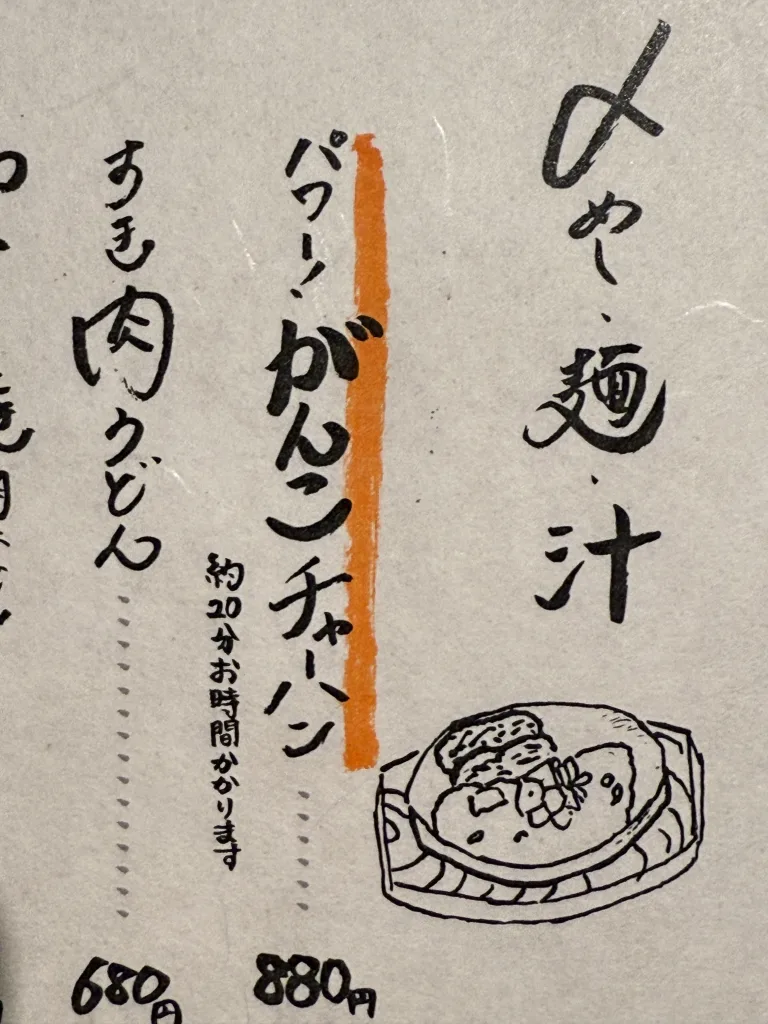 〆めし・麺・汁
パワー!がんこチャーハン 880円
約20分お時間かかります
すき肉うどん 680円